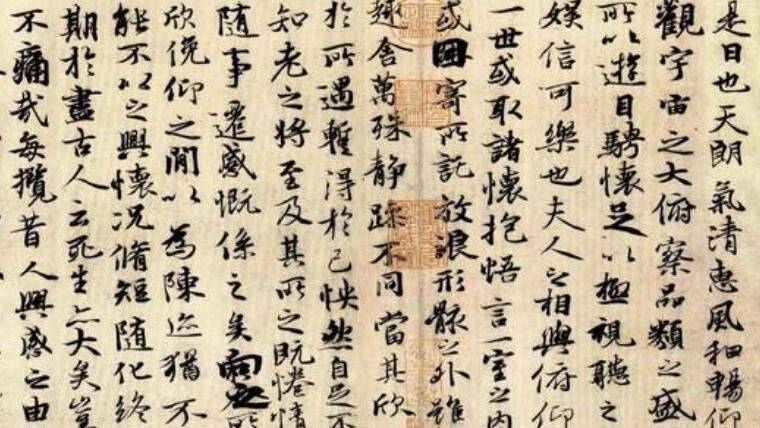 是日也天朗氣清惠風和暢仰
觀宇宙之大俯察品類之盛
所以遊目騁懷足以極視聽之
娛信可樂也夫人之相與俯仰
一世或取諸懷抱悟言一室之內
或因寄所託放浪形骸之外雖
趣舍萬殊靜躁不同當其欣
於所遇暫得於己怏然自足不
知老之將至及其所之既惓情
隨事遷感慨係之矣向之所
欣俛仰之閒以為陳迹猶不
能不以之興懷況脩短隨化終
期於盡古人云死生亦大矣豈
不痛哉每攬昔人興感之由